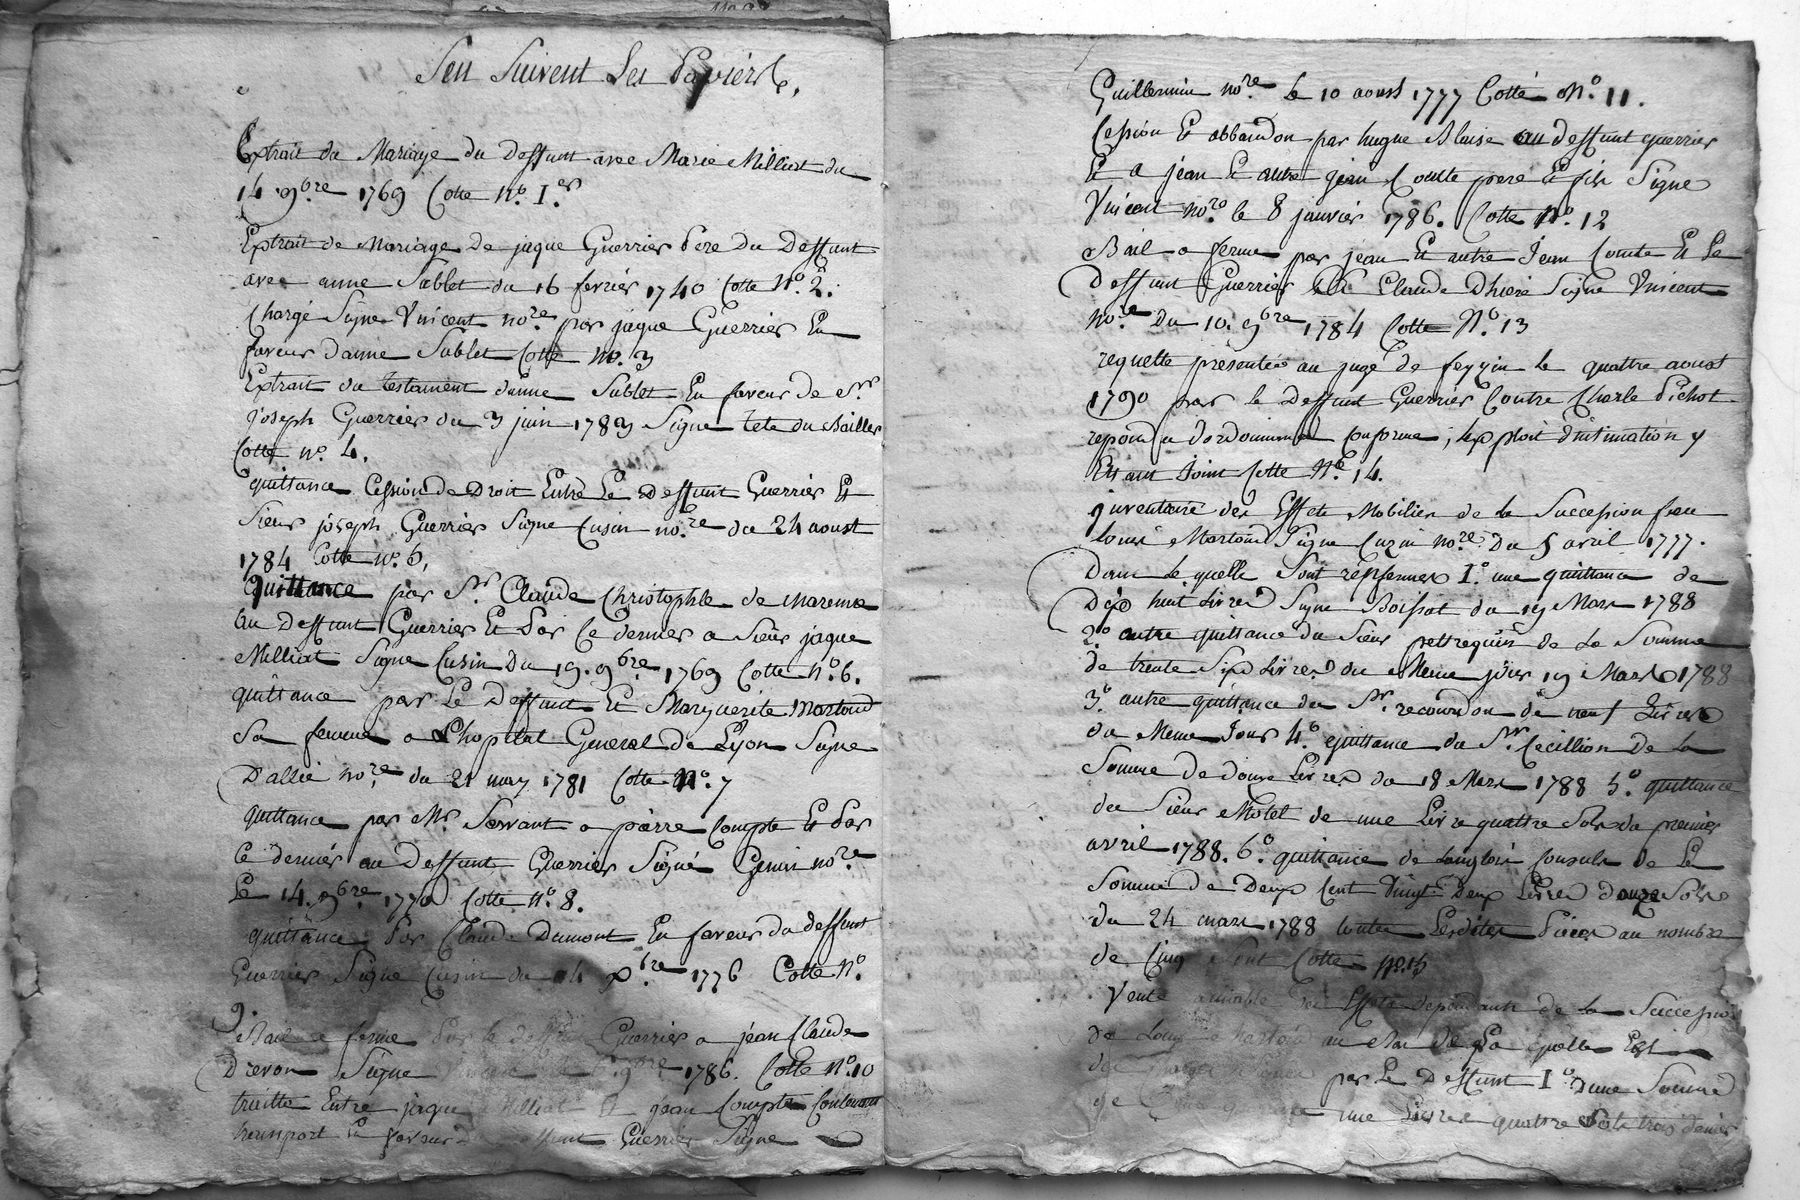 Sen Suivent Les Papiers,
Extrait du Mariage du Deffunt avec Marie Milliat du
14 9bre 1769 Cotte No. 1er
Extrait de Mariage de jaque Guerrier Pere du Deffunt
avec anne Sablet du 16 fevrier 1740 Cotte No. 2.
Charge Signe Vincent nore. par jaque Guerrier En
faveur danne Sablet Cotte No. 3
Extrait du testament danne Sablet En faveur de Sr.
joseph Guerrier du 3 juin 1783 Signe tete du Bailler
Cotte no. 4.
quittance Cession de Droit Entre Le Deffunt Guerrier Et
Sieur joseph Guerrier Signe Cusin nore. du 24 aoust
1784 Cotte no. 5,
Quittance par Sr. Claude Christophle de Maremne
au Deffunt Guerrier Et Par Ce dernier a Sieur jaque
Milliat Signe Cusin Du 19. 9bre. 1769 Cotte No. 6.
quittance par Le Deffunt Et Marguerite Martoud
Sa femme a Lhopital General de Lyon Signe
Dallie nore. du 21 may 1781 Cotte No. 7
quittance par Mr. Servant a pierre Compte Et Par
Ce dernier au Deffunt Guerrier Signé nore
Le 14. 9bre. 1770 Cotte No. 8.
quittance Par Claude Dumont En faveur du deffunt
Guerrier Signe Cusin du 14 Xbre 1776 Cotte No.
9.
Bail a ferme Par le Deffunt Guerrier a jean Claude
Drevon Signe 9bre 1786. Cotte No. 10
traitte Entre jaque Milliat Et jean Compte Contenant
transport En faveur Deffunt Guerrier Signe
Guillermin nore. Le 10 aoust 1777 Cotté No. 11.
Cession Et abbandon par hugue Blaise au deffunt guerrier
Et a jean Et autre jean Comte pere Et fils Signe
Vincent nore. le 8 janvier 1786. Cotte No. 12
Bail a ferme par jean Et autre Jean Comte Et Le
Deffunt Guerrier a Claude Dhiere Signe Vincent
nore. Du 10. 9bre 1784 Cotte No. 13
requette présentée au juge de feyzin le quattre aoust
1790 par le Deffunt Guerrier Contre Charle Pichot
repondue dordonnance conforme, lexploit dintimation y
Etant Joint Cotte No. 14.
inventaire des Effets Mobilier de la Succession feu
louis Martoud Signe Cuzin nore. Du 5 avril 1777.
Dans Le quelle Sont renfermes 1o. une quittance de
Dix huit Livres Signe Boissat du 19 Mars 1788
2o autre quittance du Sieur pettrequin de La Somme
de trente Six Livres du Meme jour 19 Mars 1788
3o. autre quittance du Sr. recourdon de neuf Livres
du Meme Jour 4o. quittance du Sr. Cecillion De La
Somme de douze Livres du 18 Mars 1788 5o. quittance
du Sieur Motet de une Livre quattre Sols du premier
avril 1788. 6o. quittance de Langlois Consule de La
Somme de Deux Cent Vingt Deux Livres douze Sols
du 24 mars 1788 toutes Lesdites Pieces au nombre
de Cinq Sont Cotte No. 15
Vente amiable des Effets dependants de la Successio
de Louis Martoud au Bas de La quelle Est
par Le Deffunt 1o. Dune Somme
de une Livres quattre Sols trois denier